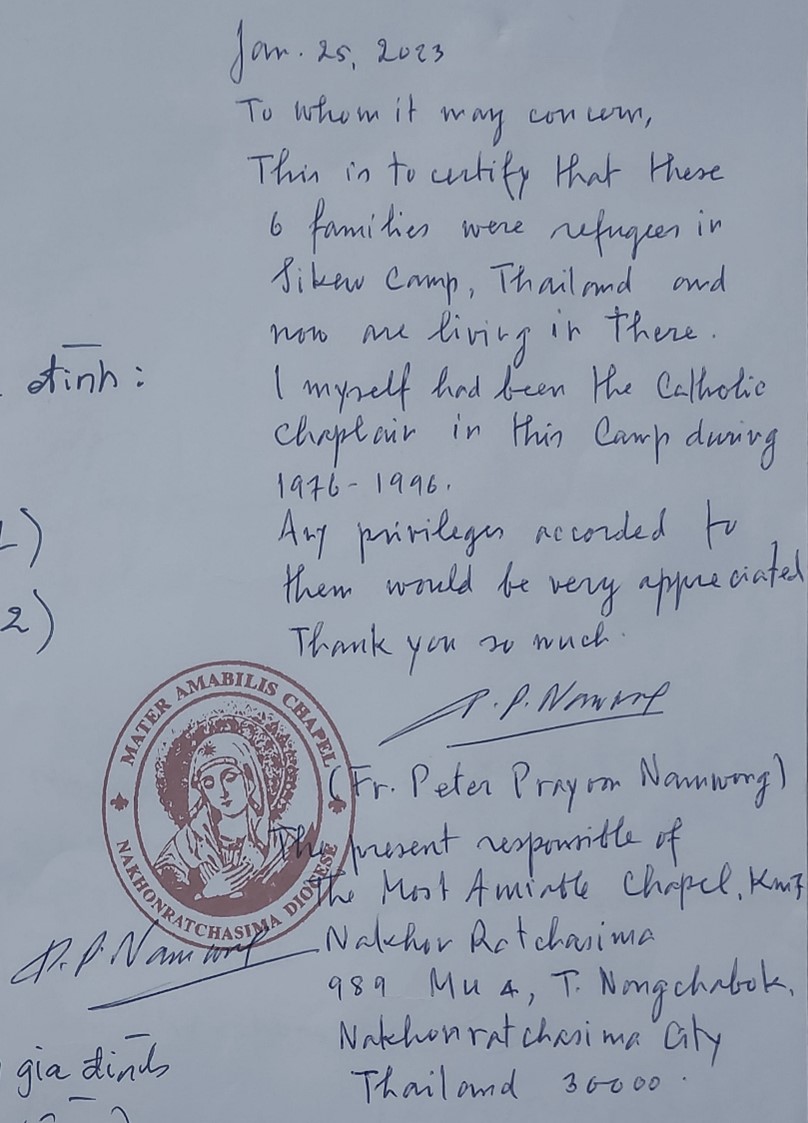 Jan. 25, 2023
To whom it may concern,
This is to certify that these
6 families were refugees in
Sikew Camp, Thailand and
now are living in there.
đình :
I myself had been the Catholic
chaplain in this Camp during
1976 - 1996.
Any privileges accorded to
)
them would be very appreciated
2)
Thank you so much.
P.P. Namwong
MATER AMABILIS CHAPEL
NAKHONRATCHASIMA DIOCESE
(Fr. Peter Prayoon Namwong)
The present responsible of
the Most Amiable Chapel, Km 7
Nakhon Ratchasima
P.P. Namwong
989 Mu 4, T. Nongchabok,
Nakhonratchasima City
gia đình
Thailand 30000.